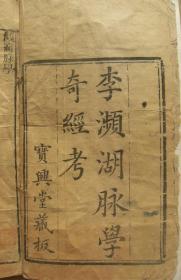 李瀕湖脉學
奇經考
寶興堂藏板